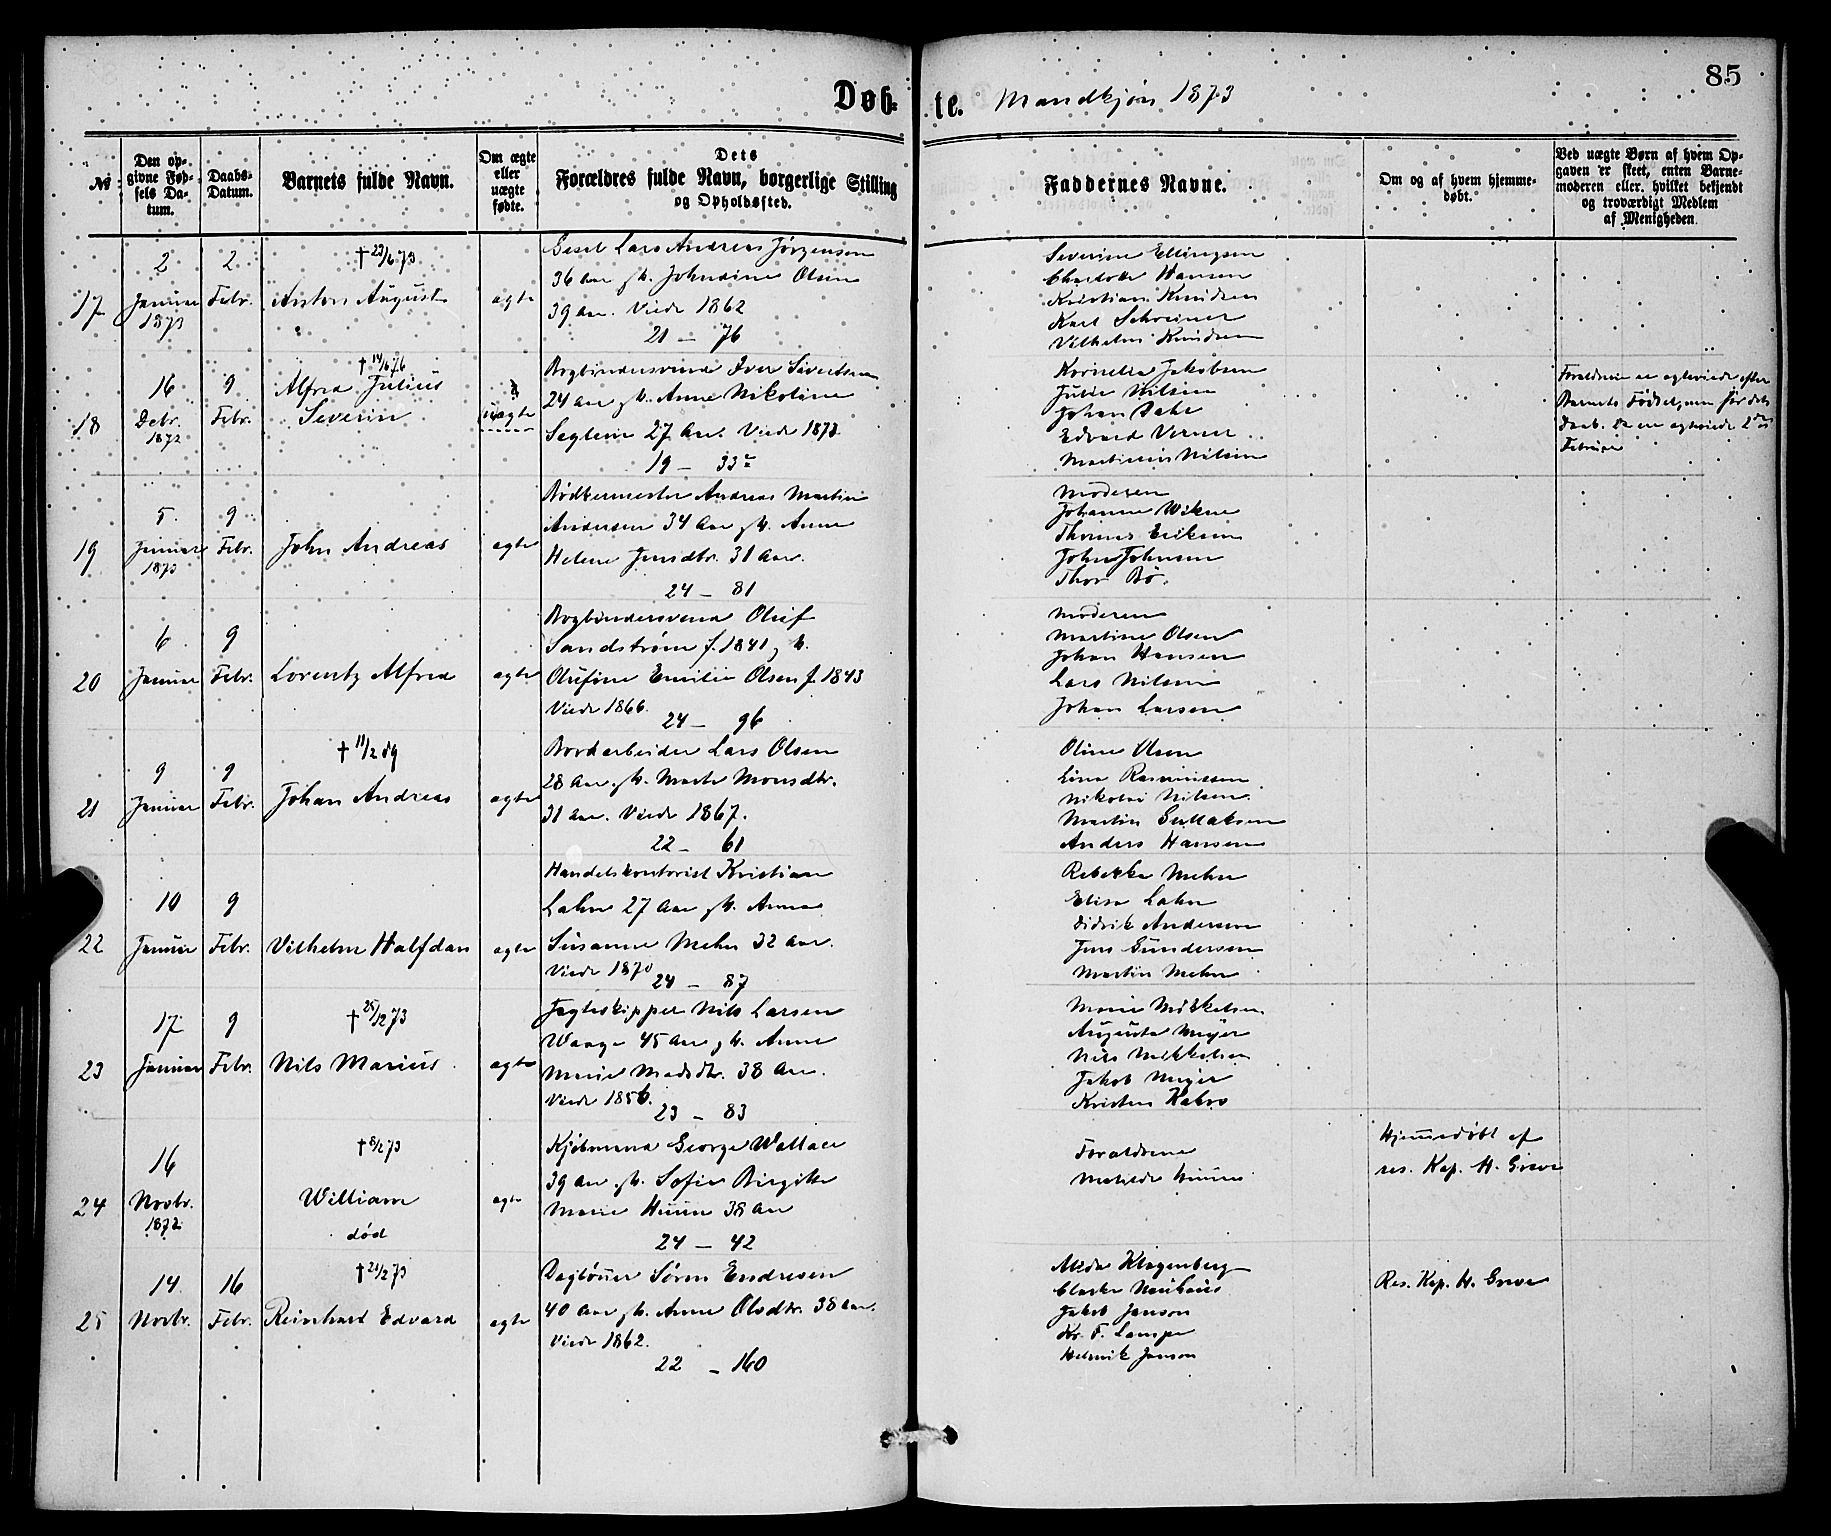 Døb-te. Mandkjøn 1873
85
№
Den op-
givne Fød-
sels Da-
tum.
Daabs-
Datum.
Barnets fulde Navn.
Om ægte
eller
uægte
fødte.
Dets
Forældres fulde Navn, borgerlige Stilling
og Opholdssted.
Faddernes Navne.
Om og af hvem hjemme-
døbt.
Ved uægte Børn af hvem Op-
gaven er skeet, enten Barne-
moderen eller hvilket bekjendt
og troværdigt Medlem
af Menigheden.
17
2
Januar
1873
2
Febr.
†23/6 73
Anton August
ægte
Lars Andreas Jørgensen
36 Aar Johndine Olsen
39 Aar. Viede 1862
21 — 76
Severine Ellingsen
Charlotte Hansen
Kristian Knudsen
Karl Schreiner
Vilhelm Knudsen
18
16
Debr.
1872
9
Febr.
†14/6 76
Alfred Julius
Severin
uægte
Bogbindersvend Iver Sivertsen
24 Aar Anne Nikoline
27 Aar. Viede 1873
19 — 33
Kornelia Jakobsen
Julie Nilsen
Johan Dahl
Edvard Verner
Martinius Nilsen
Forældrene er ægteviede efter
Barnets Fødsel, men før dets
Daab. De ere ægteviede 2den
Februar
19
5
Januar
1873
9
Febr.
John Andreas
ægte
Bødkermester Andreas Martin
Andersen 34 Aar Anne
Helene Jensdtr. 31 Aar.
24 — 81
Moderen
Johanne
Thomas Eriksen
John Johnsen
Thor Bø.
20
6
Januar
9
Febr.
Lorentz Alfred
ægte
Bogbindersvend Oluf
Sandstrøm f. 1841
Olufine Emilie Olsen f. 1843
Viede 1866.
24 — 96
Moderen
Martine Olsen
Johan Hansen
Lars Nilsen
Johan Larsen
21
9
Januar
9
Febr.
†11/2 89
Johan Andreas
ægte
Bordarbeider Lars Olsen
28 Aar Marte Monsdtr.
31 Aar. Viede 1867.
22 — 61
Oline Olsen
Lina Rasmussen
Nikolai Nilsen
Martin Gullaksen
Anders Hansen
22
10
Januar
9
Febr.
Vilhelm Halfdan
ægte
Handelskontorist Kristian
Lahn 27 Aar Anna
Susanne Mehn 32 Aar.
Viede 1870
24 — 87
Rebekka Mehn
Elisa Lahn
Didrik Andersen
Jens Gundersen
Martin Mehn
23
17
Januar
9
Febr.
†25/12 73
Nils Marius
ægte
Jagteskipper Nils Larsen
Waage 45 Aar Anne
Marie Madsdtr. 38 Aar.
Viede 1856.
23 — 83
Marie Mikkelsen
Augusta Meyer
Nils Mikkelsen
Jakob Meyer
24
16
Novbr.
1872
†8/2 73
William
død
ægte
Kjøbmand George Wallace
39 Aar Sofie Birgitte
Marie 38 Aar
24 — 42
Forældrene
Matilde
Hjemmedøbt af
res. Kap. H. Greve
25
14
Novbr.
16
Febr.
†21/2 73
Reinhard Edvard
ægte
Daglönner Sören Endresen
40 Aar Anne Olsdtr. 38 Aar.
Viede 1862.
22 — 160
Alida Klagenberg
Jakob Janson
Henrik Janson
Res. Kap. H. Greve